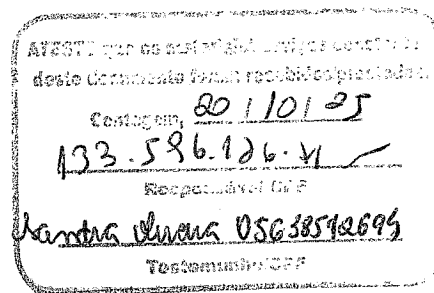 ATESTO que os materiais/serviços constantes
deste documento foram recebidos/prestados.
Contagem, 20 / 10 / 25
133.596.126.
Responsável CPF
Sandra 05638512695
Testemunha/CPF